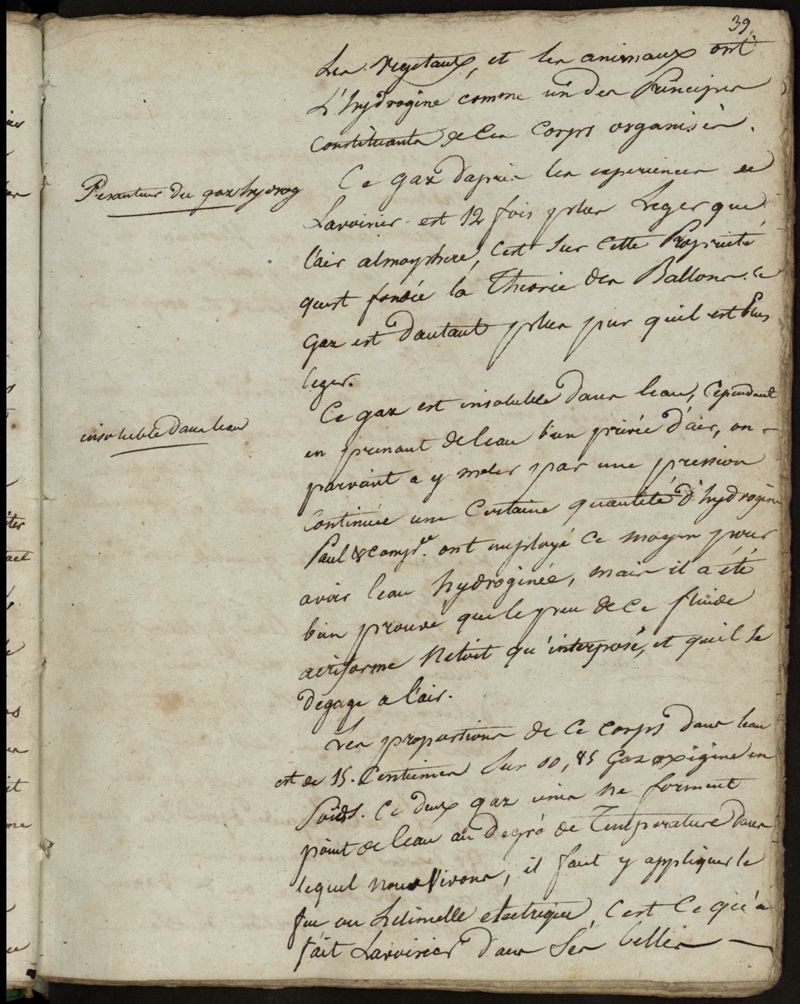 39.
Les vegetaux, et les animaux ont
L'hydrogine comme un des Principes
Constituants de Ces Corps organisés.
Pesanteur du gaz hydrog
Ce gaz d'après les experiences de
Lavoisier est 12 fois plus Leger que
l'air atmosphere, C'est sur cette Proprieté
qu'est fondée la Theorie des Ballons. Ce
Gaz est d'autant plus pur qu'il est Plus
leger.
insoluble dans leau
Ce gaz est insoluble dans leau, Cependant
en prenant de leau bien privée d'air, on
parvient a y meler par une pression
Continuée une Certaine quantité d'hydrogine
Paul & comp.e ont employé Ce moyen pour
avoir leau hydroginée, mais il a été
bien prouvé que le peu de Ce fluide
aeriforme Netoit qu'interposé, et qu'il se
degage a l'air.
Les proportions de Ce Corps dans leau
est de 15. Centiemes sur 00,85 Gaz oxigine en
Poids. Ce deux gaz unies ne forment
point de leau au Degré de Temperature dans
lequel nous Vivons, il faut y appliquer le
feu ou letincelle electrique, C'est Ce qu'a
fait Lavoisier dans Ses belles